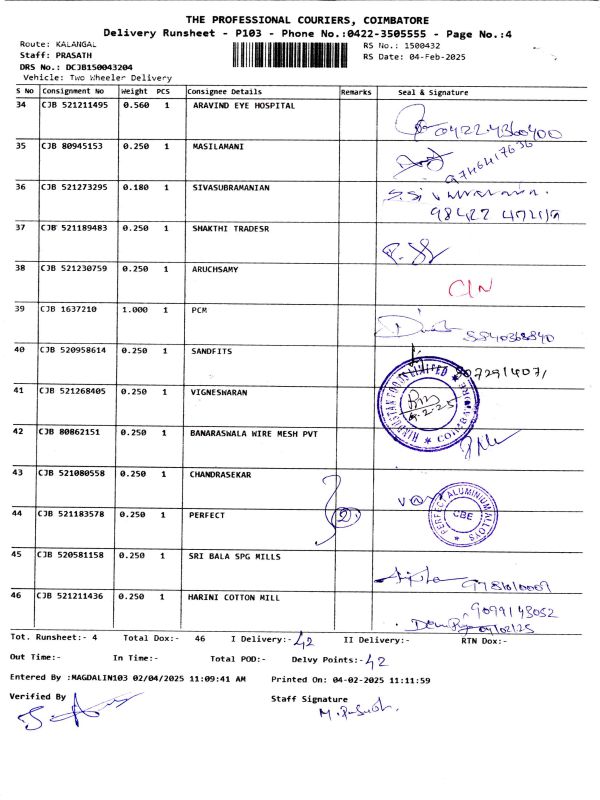 THE PROFESSIONAL COURIERS, COIMBATORE
Delivery Runsheet - P103 - Phone No.:0422-3505555 - Page No.:4
Route: KALANGAL RS No.: 1500432
Staff: PRASATH RS Date: 04-Feb-2025
DRS No.: DCJB150043204
Vehicle: Two Wheeler Delivery
S No Consignment No Weight PCS Consignee Details Remarks Seal & Signature
34 CJB 521211495 0.560 1 ARAVIND EYE HOSPITAL
0422-4360400
35 CJB 80945153 0.250 1 MASILAMANI
9746417636
36 CJB 521273295 0.180 1 SIVASUBRAMANIAN
98427
37 CJB 521189483 0.250 1 SHAKTHI TRADESR
38 CJB 521230759 0.250 1 ARUCHSAMY
CIN
39 CJB 1637210 1.000 1 PCM
40 CJB 520958614 0.250 1 SANDFITS
9072914071
41 CJB 521268405 0.250 1 VIGNESWARAN
42 CJB 80862151 0.250 1 BANARASWALA WIRE MESH PVT
43 CJB 521080558 0.250 1 CHANDRASEKAR
44 CJB 521183578 0.250 1 PERFECT 2
PERFECT ALUMINIUM ALLOYS
CBE
45 CJB 520581158 0.250 1 SRI BALA SPG MILLS
46 CJB 521211436 0.250 1 HARINI COTTON MILL
9099143052
04/02/25
Tot. Runsheet:- 4 Total Dox:- 46 I Delivery:- 42 II Delivery:- RTN Dox:-
Out Time:- In Time:- Total POD:- Delvy Points:- 42
Entered By :MAGDALIN103 02/04/2025 11:09:41 AM Printed On: 04-02-2025 11:11:59
Verified By Staff Signature